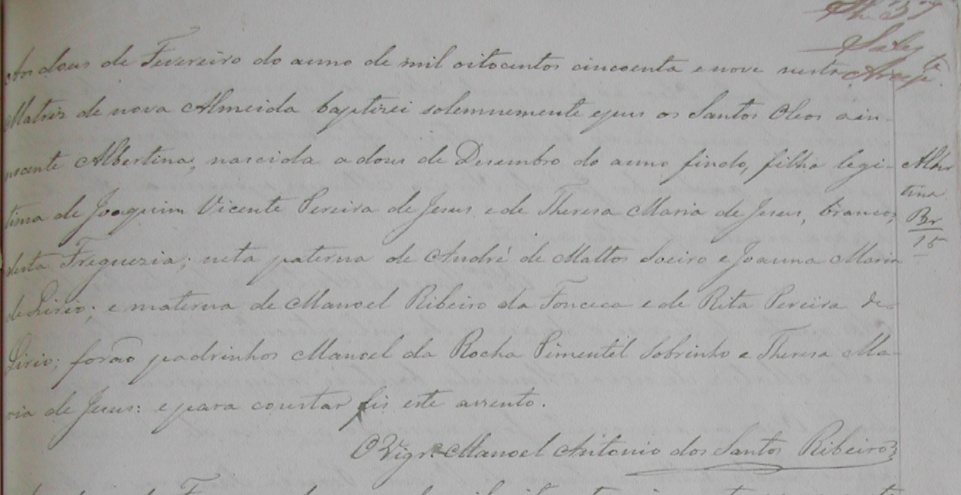 Fl. 37
Sales
Aos dous de Fevereiro do anno de mil oitocentos cincoenta e nove nesta
Matriz de nova Almeida baptizei solemnemente e pus os Santos Oleos a in-
nocente Albertina, nascida a dous de Desembro do anno findo, filha legi-
tima de Joaquim Vicente Pereira de Jesus, e de Theresa Maria de Jesus, brancos,
desta Freguezia; neta paterna de André de Mattos Soeiro e Joanna Maria
de Lirio; e materna de Manoel Ribeiro da Fonceca e de Rita Pereira de
Lirio; forão padrinhos Manoel da Rocha Pimentel Sobrinho e Theresa Ma-
ria de Jesus: e para constar fis este assento.
O Vigr.º Manoel Antonio dos Santos Ribeiro
Alber
tina
Br
15